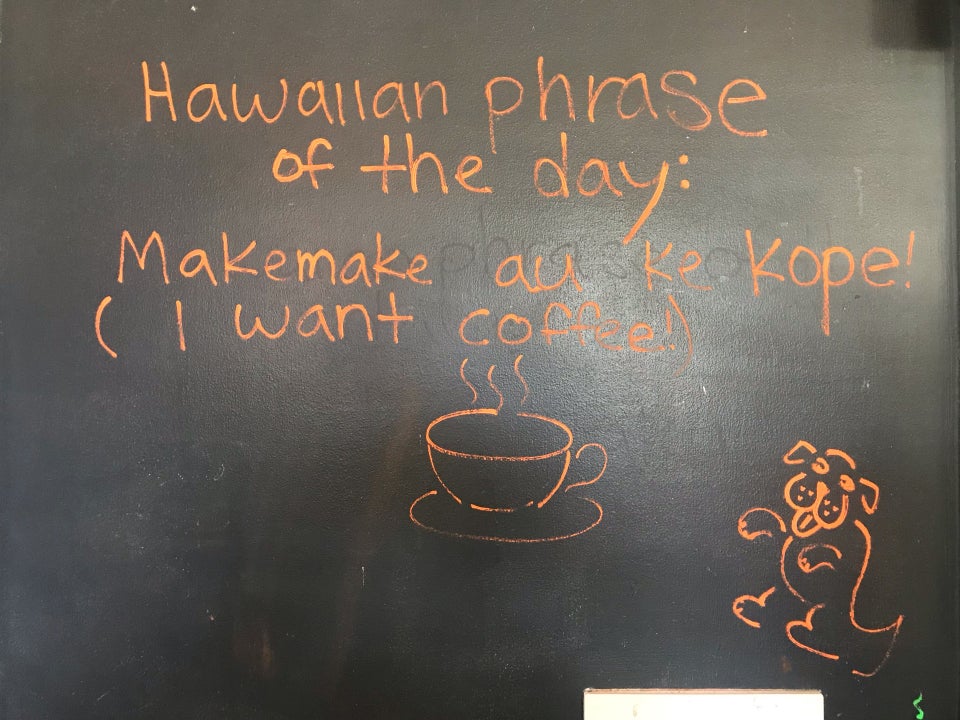 Hawaiian phrase
of the day:
Makemake au ke kope!
( I want coffee!)